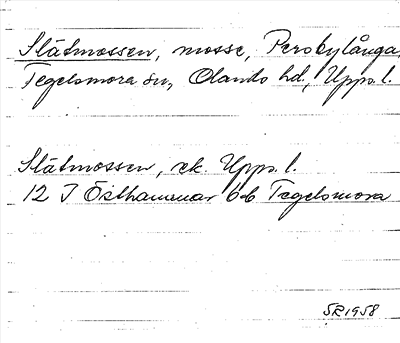 Slåtmossen, mosse, Persbylånga,
Tegelsmora sn, Olands hd, Upps. l.
Slåtmossen, ek. Upps. l.
12 I Östhammar 6b Tegelsmora
SR 1958